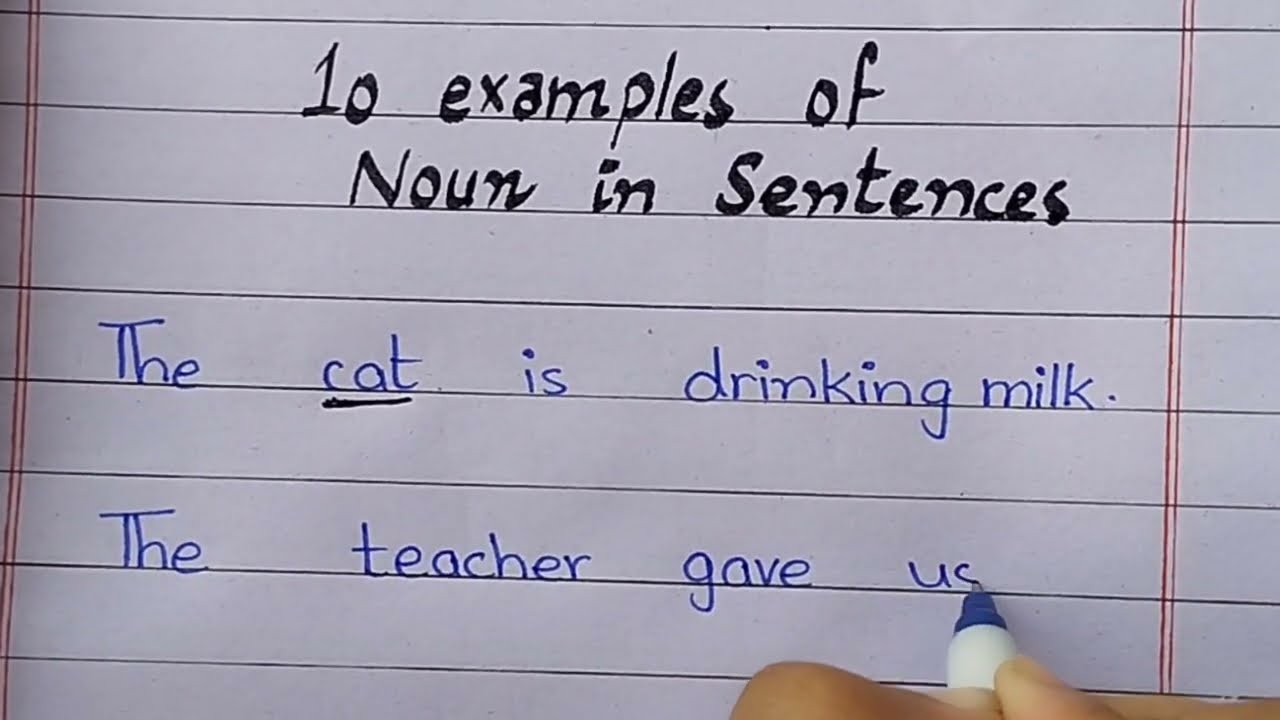 10 examples of
Noun in Sentences
The cat is drinking milk.
The teacher gave us